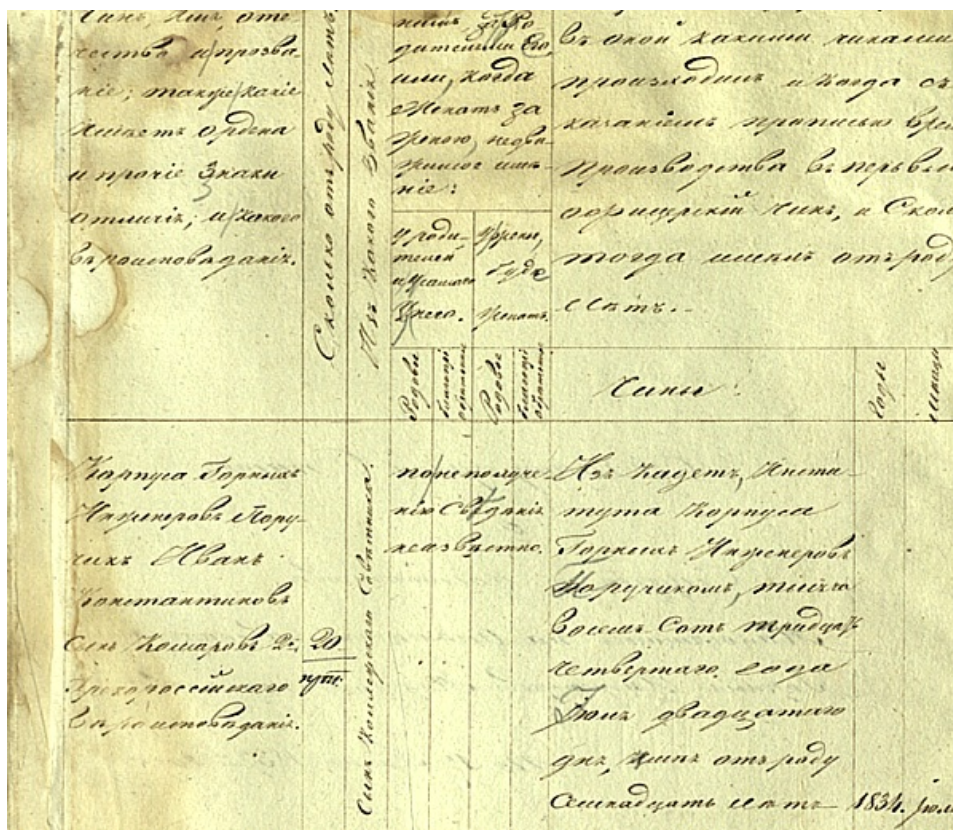 Чинъ, имя, оте-
чество и прозва-
ніе; также какіе
имѣетъ ордена
и прочіе знаки
отличія; и какого
вѣроисповѣданія.
Сколько отъ роду лѣтъ.
Изъ какого званія.
дителями его
или, когда
женатъ за
женою, недви-
жимое имѣ-
ніе:
у роди-
телей
у жены,
буде
женатъ.
Родовое
Родовое
въ оной какими чинами
происходилъ и когда съ
показаніемъ
производства въ первый
офицерскій чинъ, и сколько
тогда имѣлъ отъ роду
лѣтъ.
Чины
Годы
Мѣсяцы
Корпуса Горныхъ
Инженеровъ Пору-
чикъ Иванъ
Константиновъ
сынъ Комаровъ 2й.
Грекороссійскаго
вѣроисповѣданія.
20
Сынъ Совѣтника.
по неполуче-
нію свѣденія
неизвѣстно.
Изъ Кадетъ, Инсти-
тута Корпуса
Горныхъ Инженеровъ
Поручикомъ, тысяча
восемь сотъ тридцать
четвертаго года
Іюля двадцатаго
дня, имѣя отъ роду
семнадцать лѣтъ
1834. Іюля